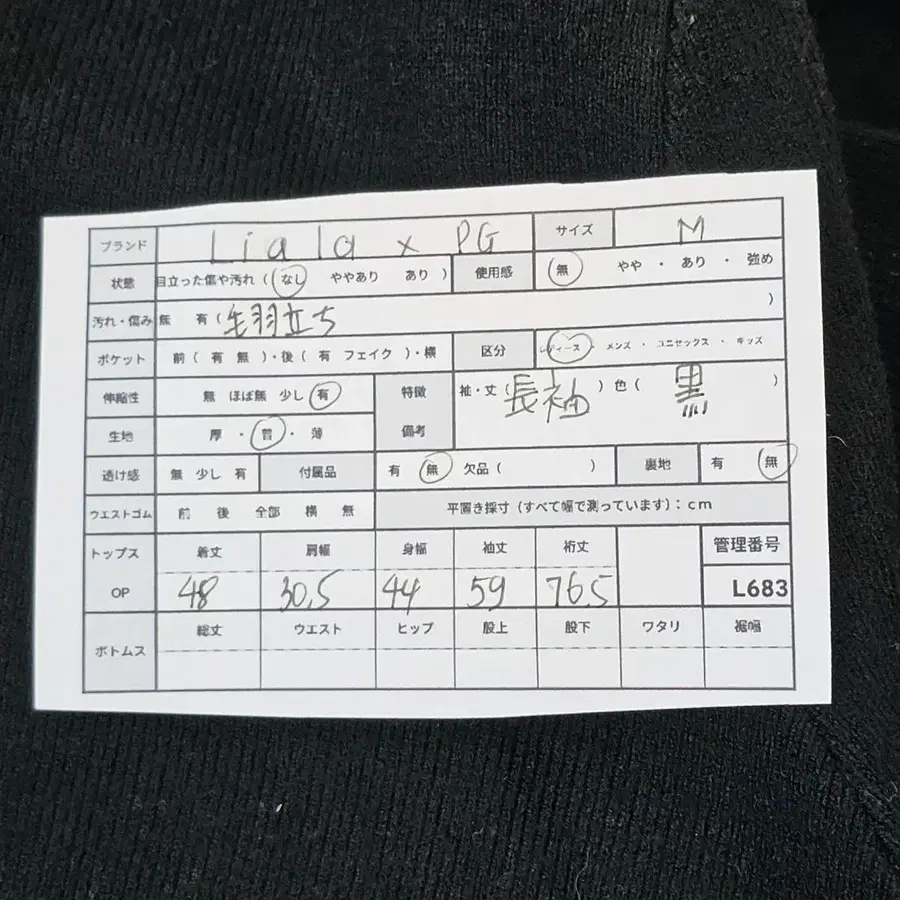 ブランド Liala x PG サイズ M
状態 目立った傷や汚れ ( なし ややあり あり ) 使用感 無 やや ・ あり ・ 強め
汚れ・傷み 無 有 ( 毛羽立ち )
ポケット 前 ( 有 無 )・後 ( 有 フェイク )・横 区分 レディース ・ メンズ ・ ユニセックス ・ キッズ
伸縮性 無 ほぼ無 少し 有 特徴 袖・丈 ( 長袖 ) 色 ( 黒 )
生地 厚 ・ 普 ・ 薄 備考
透け感 無 少し 有 付属品 有 無 欠品 ( ) 裏地 有 無
ウエストゴム 前 後 全部 横 無 平置き採寸 (すべて幅で測っています) : cm
トップス 着丈 肩幅 身幅 袖丈 裄丈 管理番号
OP 48 30.5 44 59 76.5 L683
ボトムス 総丈 ウエスト ヒップ 股上 股下 ワタリ 裾幅